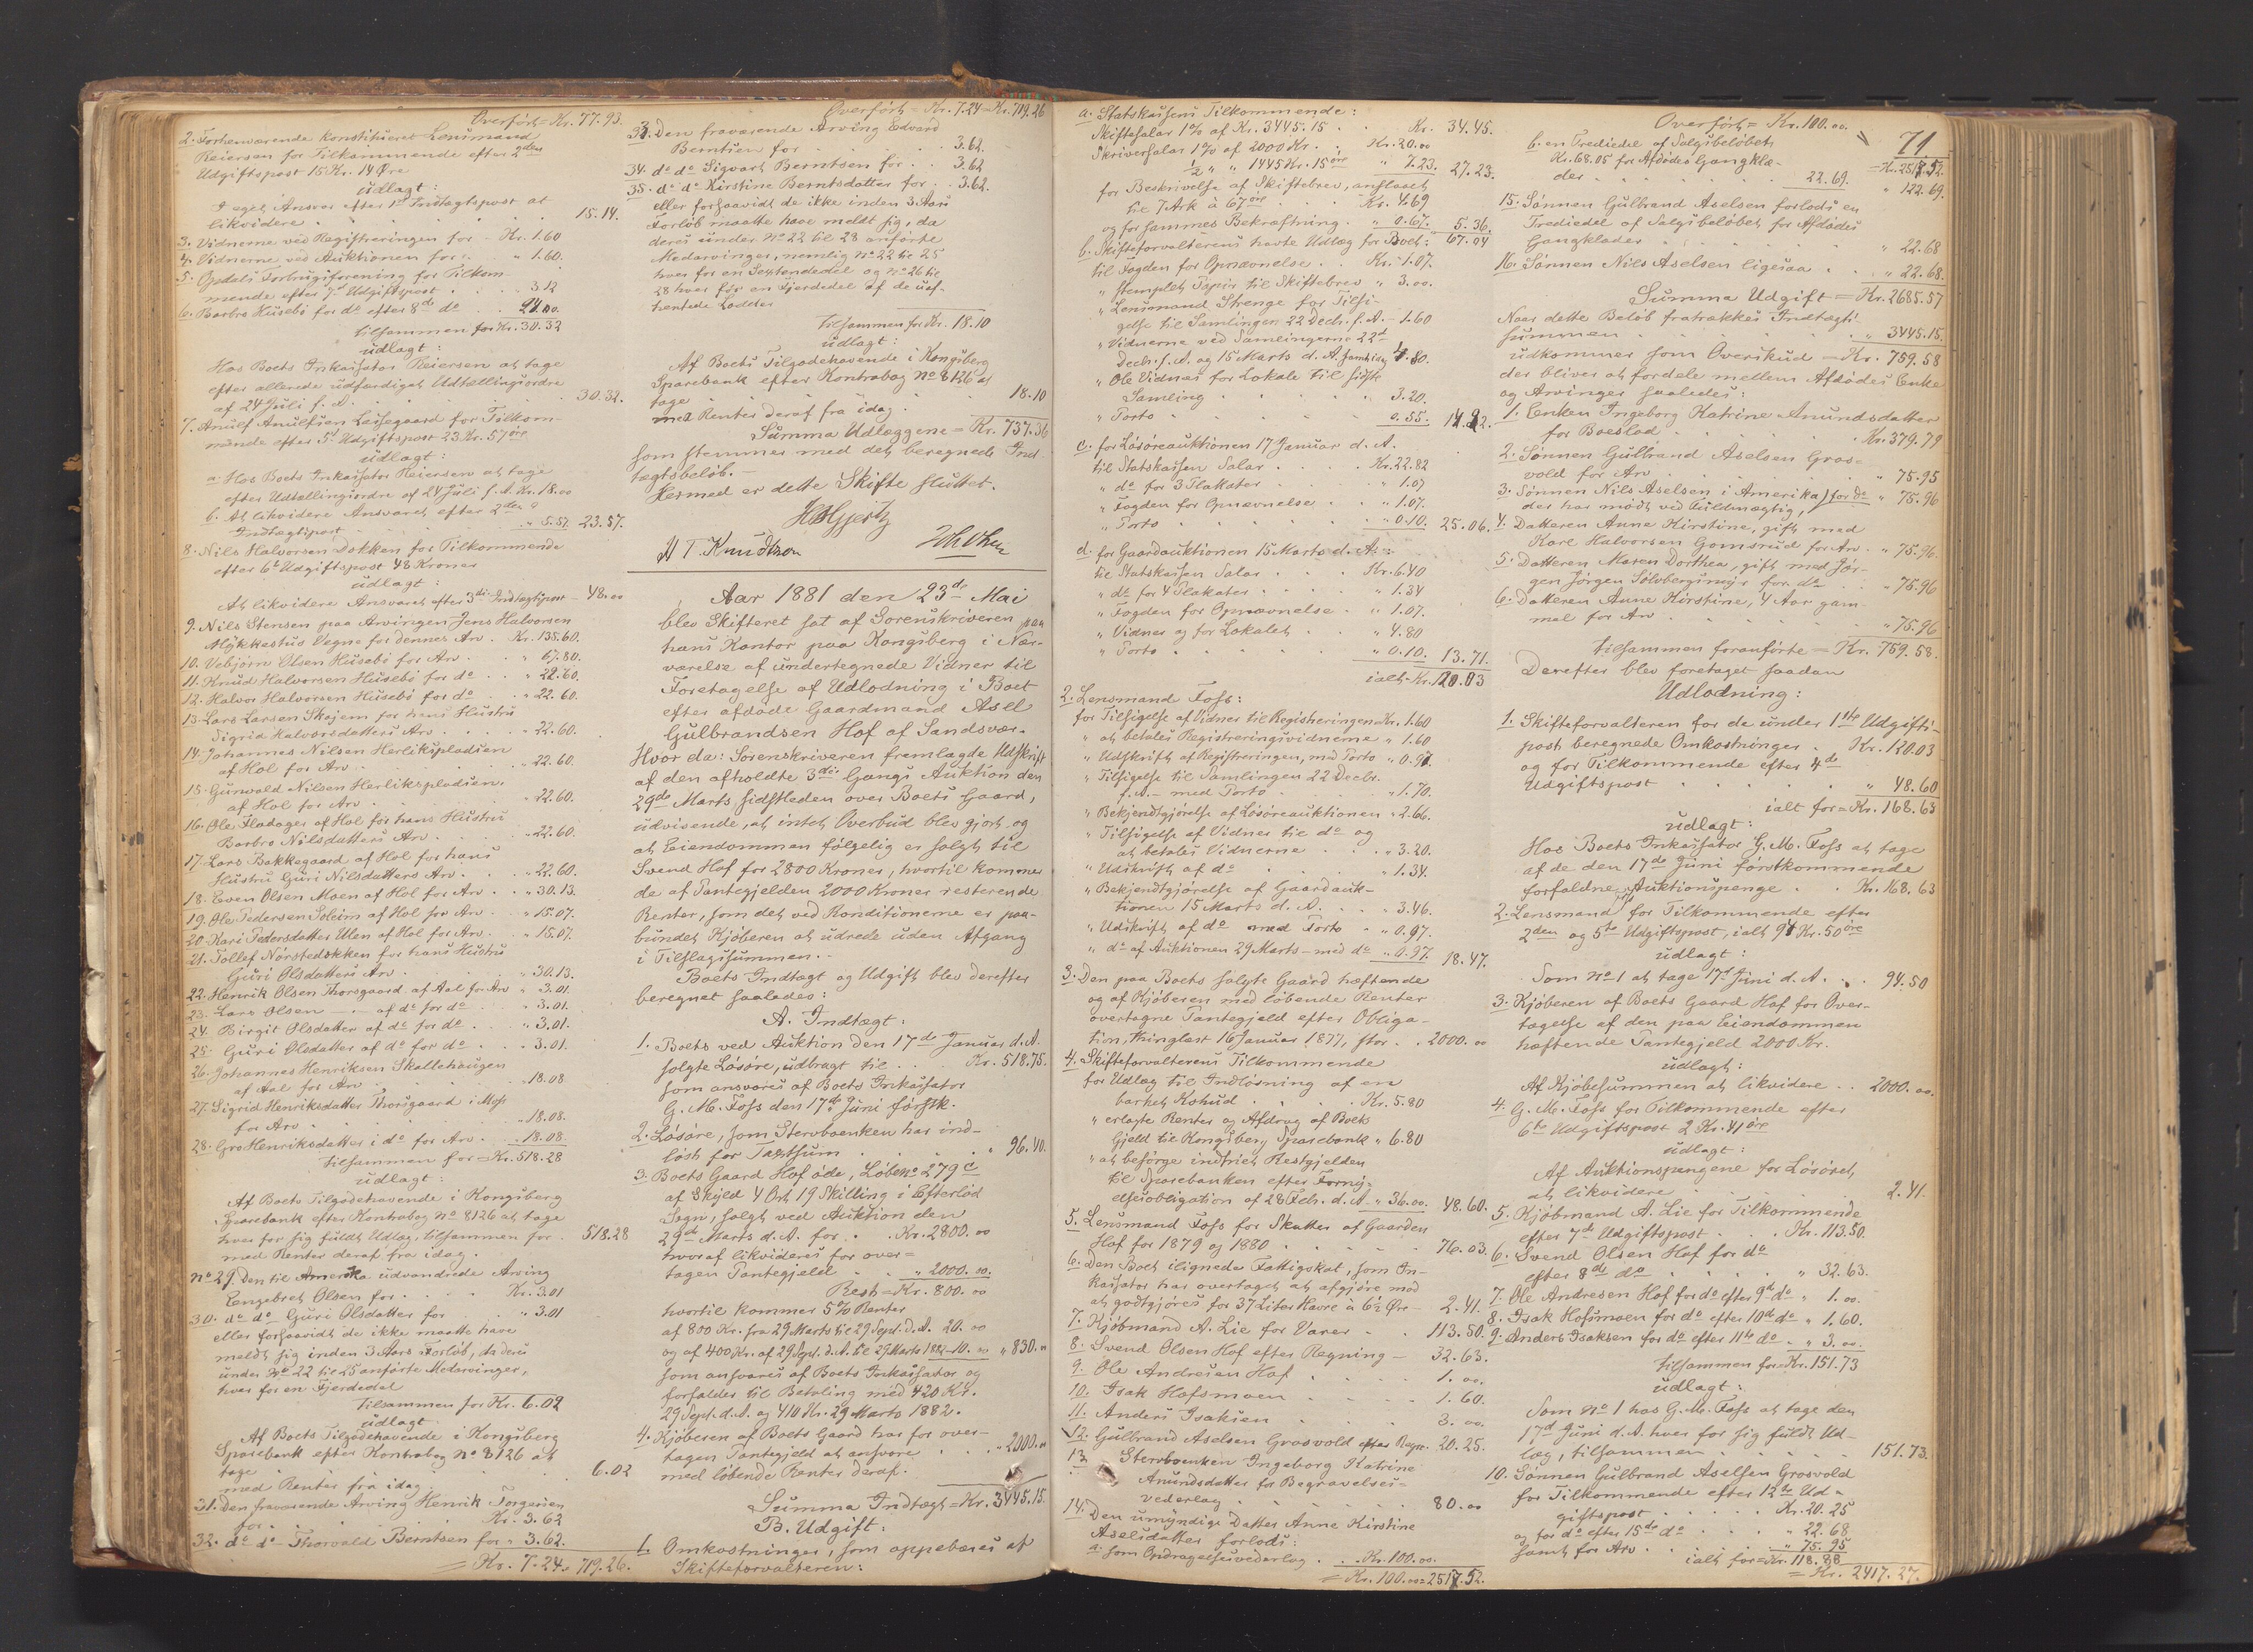 Overført = Kr. 77.93.
2. Forhenværende konstitueret Lensmand
Reiersen for Tilkommende efter 2den
Udgiftspost 15 Kr. 14 Øre
udlagt:
I eget Ansvar efter 1ste Indtægtspost at
likvidere . . . 15.14.
3. Vidnerne ved Registreringen for - Kr. 1.60
4. Vidnerne ved Auktionen for . . " 1.60.
5. Opdals Forbrugsforening for Tilkom-
mende efter 7de Udgiftspost . . 3.12
6. Barbro Husebö for do efter 8de do . . 24.00.
tilsammen for Kr. 30.32
udlagt:
Hos Boets Inkassator Reiersen at tage
efter allerede udfærdiget Udtællingsordre
af 24 Juli f. A. . . . 30.32.
7. Anulf Anulfsen Lassegaard for Tilkom-
mende efter 5te Udgiftspost 23 Kr. 57 öre
udlagt:
a. Hos Boets Inkassator Reiersen at tage
efter Udtællingsordre af 24 Juli f. A. Kr. 18.00
b. At likvidere Ansvaret efter 2den
Indtægtspost . . . " 5.57. 23.57.
8. Nils Halvorsen Dokken for Tilkommende
efter 6te Udgiftspost 48 Kroner
udlagt:
At likvidere Ansvaret efter 3die Indtægtspost - 48.00
9. Nils Stensen paa Arvingen Jens Halvorsen
Mykkestus Vegne for dennes Arv . Kr. 135.60.
10. Vebjörn Olsen Husebö for Arv . . " 67.80.
11. Knud Halvorsen Husebö for do . . " 22.60.
12. Halvor Halvorsen Husebö for do . . " 22.60.
13. Lars Larsen Skojem for hans Hustru
Sigrid Halvorsdatters Arv . . . " 22.60.
14. Johannes Nilsen Herlikspladsen
af Hol for Arv . . . " 22.60.
15. Gunvald Nilsen Herlikspladsen
af Hol for Arv . . . " 22.60.
16. Ole Fladager af Hol for hans Hustru
Barbro Nilsdatters Arv . . . " 22.60.
17. Lars Bakkegaard af Hol for hans
Hustru Guri Nilsdatters Arv . . " 22.60.
18. Even Olsen Moen af Hol for Arv . . " 30.13.
19. Ole Pedersen Soleim af Hol for Arv . " 15.07.
20. Kari Pedersdatter Ulen af Hol for Arv . " 15.07.
21. Tollef Nörstedokken for hans Hustru
Guri Olsdatters Arv . . . " 30.13.
22. Henrik Olsen Thorsgaard af Aal for Arv " 3.01.
23. Lars Olsen — af do for do . . " 3.01.
24. Birgit Olsdatter af do for do . . " 3.01.
25. Guri Olsdatter af do for do . . " 3.01.
26. Johannes Henriksen Skallehaugen
af Aal for Arv . . . " 18.08
27. Sigrid Henriksdatter Thorsgaard i Moss
for Arv . . . " 18.08.
28. Gro Henriksdatter i do for Arv . " 18.08
tilsammen for = Kr. 518.28
udlagt:
Af Boets Tilgodehavende i Kongsberg
Sparebank efter Kontrabog No 8126 at tage
hver for sig fuldt Udlæg, tilsammen for . 518.28
med Renter deraf fra idag.
No 29. Den til Amerika udvandrede Arving
Engebret Olsen for . . . Kr. 3.01
30. do do Guri Olsdatter for . " 3.01
eller forsaavidt de ikke maatte have
meldt sig inden 3 Aars Forløb, da deres
under No 22 til 25 anførte Medarvinger,
hver for en Fjerdedel
tilsammen for Kr. 6.02
udlagt
Af Boets Tilgodehavende i Kongsberg
Sparebank efter Kontrabog No 8126 at
tage . . . 6.02
med Renter fra idag.
31. Den fraværende Arving Henrik Torgersen
for . . . Kr. 3.62
32. do do Thorvald Berntsen for " 3.62.
= Kr. 7.24 = 719.26.
Overført = Kr. 7.24 = Kr. 719.26
33. Den fraværende Arving Edvard
Berntsen for . . . 3.62.
34. do do Sigvart Berntsen for . . 3.62
35. do do Kirstine Berntsdatter for . . 3.62.
eller forsaavidt de ikke inden 3 Aars
Forløb maatte have meldt sig, da
deres under No 22 til 28 anførte
Medarvinger, nemlig No 22 til 25
hver for en Sextendedel og No 26 til
28 hver for en Fjerdedel af de uaf-
hentede Lodder
tilsammen for Kr. 18.10
udlagt:
Af Boets Tilgodehavende i Kongsberg
Sparebank efter Kontrabog No 8126 at
tage . . . 18.10
med Renter deraf fra idag.
Summa Udlæggene = Kr. 737.36
som stemmer med det beregnede Ind-
tægtsbeløb. —
Hermed er dette Skifte sluttet.
H T Knudtzon
Aar 1881 den 23de Mai
blev Skifteret sat af Sorenskriveren paa
hans Kontor paa Kongsberg i Nær-
værelse af undertegnede Vidner til
Foretagelse af Udlodning i Boet
efter afdøde Gaardmand Asel
Gulbrandsen Hof af Sandsvær.
Hvor da: Sorenskriveren fremlagde Udskrift
af den afholdte 3die Gangs Auktion den
29de Marts sidstleden over Boets Gaard,
udvisende, at intet Overbud blev gjort og
at Eiendommen følgelig er solgt til
Svend Hof for 2800 Kroner, hvortil kommer
de af Pantegjelden 2000 Kroner resterende
Renter, som det ved Konditionerne er paa-
bundet Kjøberen at udrede uden Afgang
i Tilslagssummen. —
Boets Indtægt og Udgift blev derefter
beregnet saaledes:
A. Indtægt:
1. Boets ved Auktion den 17de Januar d. A.
solgte Løsøre, udbragt til . . Kr. 518.75.
som ansvares af Boets Inkassator
G. M. Foss den 17de Juni førstk.
2. Løsøre, som Stervboenken har ind-
løst for Taxtsum . . . " 96.40.
3. Boets Gaard Hof øde, Løbeno 279c
af Skyld 4 Ort 19 Skilling i Efterlød
Sogn, solgt ved Auktion den
29de Marts d. A. for . . Kr. 2800.00
hvoraf likvideres for over=
tagen Pantegjeld . . " 2000.00.
Rest = Kr. 800.00
hvortil kommer 5% Renter
af 800 Kr. fra 29 Marts til 29 Sept. d. A. 20.00
og af 400 Kr. af 29 Sept. d. A. til 29 Marts 1882 10.00 " 830.00
som ansvares af Boets Inkassator og
forfalder til Betaling med 420 Kr.
29 Sept. d. A. og 410 Kr. 29 Marts 1882.
4. Kjøberen af Boets Gaard har for over-
tagen Pantegjeld at ansvare . . " 2000.00
med løbende Renter deraf.
Summa Indtægt = Kr. 3445.15.
B. Udgift:
1. Omkostninger, som oppebæres af
Skifteforvalteren:
a. Statskassens Tilkommende:
Skiftesalær 1% af Kr. 3445.15 . . Kr. 34.45.
Skriversalær 1% af 2000 Kr. . Kr. 20.00
1/2 " " 1445 Kr. 15 øre " 7.23. 27.23.
for Beskrivelse af Skiftebrev, anslaaet
til 7 Ark à 67 øre . . . Kr. 4.69
og for sammes Bekræftning . " 0.67. 5.36.
67.04
b. Skifteforvalterens havte Udlæg for Boet:
til Fogden for Opnævnelse . . Kr. 1.07.
" stemplet Papir til Skiftebrev " 3.00.
" Lensmand Strenge for Tilsi-
gelse til Samlingen 22 Decb. f. A. - 1.60
" Vidnerne ved Samlingerne 22de
Decb. f. A. og 15 Marts d. A. 4.80.
" Ole Vidnes for Lokale til sidste
Samling . . . " 3.20.
" Porto . . . 0.55. 14.22.
c. for Løsøreauktionen 17 Januar d. A.
til Statskassen Salær . . . Kr. 22.82
" do for 3 Plakater . . . " 1.07
" Fogden for Opnævnelse . . " 1.07.
" Porto . . . " 0.10. 25.06.
d. for Gaardauktionen 15 Marts d. A.:
til Statskassen Salær . . . Kr. 6.40
" do for 4 Plakater . . . " 1.34
" Fogden for Opnævnelse . . " 1.07.
" Vidner og for Lokalet . . " 4.80
" Porto . . . " 0.10. 13.71.
ialt = Kr. 120.03
2. Lensmand Foss:
for Tilsigelse af Vidner til Registreringen Kr. 1.60
" at betales Registreringsvidnerne " 1.60
" Udskrift af Registreringen, med Porto " 0.97.
" Tilsigelse til Samlingen 22 Decbr.
f. A. - med Porto . . . " 1.70.
" Bekjendtgjørelse af Løsøreauktionen " 2.66.
" Tilsigelse af Vidner til do og
at betales Vidnerne . . . " 3.20.
" Udskrift af do . . . " 1.34.
" Bekjendtgjørelse af Gaardauk-
tionen 15 Marts d. A. . . . " 3.46.
" Udskrift af do med Porto . " 0.97.
" do af Auktionen 29 Marts - med do " 0.97. 18.47.
3. Den paa Boets solgte Gaard heftende
og af Kjøberen med løbende Renter
overtagne Pantegjeld efter Obliga-
tion, thinglæst 16 Januar 1877, stor . . 2000.00
4. Skifteforvalterens Tilkommende
for Udlæg til Indløsning af en
barket Kohud . . . Kr. 5.80
" erlagte Renter og Afdrag af Boets
Gjeld til Kongsberg Sparebank " 6.80
" at besørge indfriet Restgjelden
til Sparebanken efter Forny-
elsesobligation af 28 Feb. d. A. " 36.00. 48.60.
5. Lensmand Foss for Skatter af Gaarden
Hof for 1879 og 1880 . . . 76.03.
6. Den Boet ilignede Fattigskat, som In-
kassator har overtaget at afgjøre mod
at godtgjøres for 37 Liter Havre à 6½ Øre - 2.41.
7. Kjøbmand A. Lie for Varer . . 113.50.
8. Svend Olsen Hof efter Regning - 32.63.
9. Ole Andresen Hof . . . 1.00.
10. Isak Hofsmoen . . . 1.60.
11. Anders Isaksen . . . 3.00.
12. Gulbrand Aselsen Grosvold efter Regn. 20.25.
13. Stervboenken Ingeborg Katrine
Anundsdatter for Begravelses-
vederlag . . . 80.00
14. Den umyndige Datter Anne Kirstine
Aselsdatter forlods:
a. som Opdragelsesvederlag . . Kr. 100.00.
= Kr. 100.00 = 2517.52.
Overført = Kr. 100.00.
71
= Kr. 2517.52.
b. en Trediedel af Salgsbeløbet
Kr. 68.05 for Afdødes Gangklæ-
der . . . 22.69. " 122.69.
15. Sønnen Gulbrand Aselsen forlods en
Trediedel af Salgsbeløbet for Afdødes
Gangklæder . . . " 22.68
16. Sønnen Nils Aselsen ligesaa . . " 22.68.
Summa Udgift = Kr. 2685.57
Naar dette Beløb fratrækkes Indtægts-
summen . . . " 3445.15.
udkommer som Overskud = Kr. 759.58
der bliver at fordele mellem Afdødes Enke
og Arvinger saaledes:
1. Enken Ingeborg Katrine Anundsdatter
for Boeslod . . . Kr. 379.79
2. Sønnen Gulbrand Aselsen Gros-
vold for Arv . . . " 75.95
3. Sønnen Nils Aselsen i Amerika) for do " 75.96
der har mødt ved Fuldmægtig,
4. Datteren Anne Kirstine, gift med
Kare Halvorsen Gomsrud for Arv . " 75.96.
5. Datteren Maren Dorthea, gift med Jör-
gen Jörgensen Sölvbergsmyr for do " 75.96
6. Datteren Anne Kirstine, 4 Aar gam-
mel for Arv . . . " 75.96
tilsammen foranførte = Kr. 759.58.
Derefter blev foretaget saadan
Udlodning:
1. Skifteforvalteren for de under 1ste Udgifts-
post beregnede Omkostninger . Kr. 120.03
og for Tilkommende efter 4de
Udgiftspost . . . " 48.60
ialt for = Kr. 168.63
udlagt:
Hos Boets Inkassator G. M. Foss at tage
af de den 17de Juni førstkommende
forfaldne Auktionspenge . . Kr. 168.63
2. Lensmand for Tilkommende efter
2den og 5te Udgiftspost, ialt 94 Kr. 50 øre
udlagt:
Som No 1 at tage 17de Juni d. A. . . 94.50
3. Kjøberen af Boets Gaard Hof for Over-
tagelse af den paa Eiendommen
hæftende Pantegjeld 2000 Kr.
udlagt:
Af Kjøbesummen at likvidere . . 2000.00.
4. G. M. Foss for Tilkommende efter
6te Udgiftspost 2 Kr. 41 øre
udlagt:
Af Auktionspengene for Løsøret
at likvidere . . . 2.41.
5. Kjøbmand A. Lie for Tilkommende
efter 7de Udgiftspost . . . Kr. 113.50.
6. Svend Olsen Hof for do
efter 8de do . . . " 32.63.
7. Ole Andresen Hof for do efter 9de do " 1.00.
8. Isak Hofsmoen for do efter 10de do " 1.60.
9. Anders Isaksen for do efter 11te do . " 3.00.
tilsammen for = Kr. 151.73
udlagt:
Som No 1 hos G. M. Foss at tage den
17de Juni d. A. hver for sig fuldt Ud-
læg, tilsammen . . . 151.73.
10. Sønnen Gulbrand Aselsen Grosvold
for Tilkommende efter 12te Ud-
giftspost . . . Kr. 20.25
og for do efter 15de do . . " 22.68.
samt for Arv . . . " 75.95
ialt for = Kr. 118.88
= Kr. 2417.27.